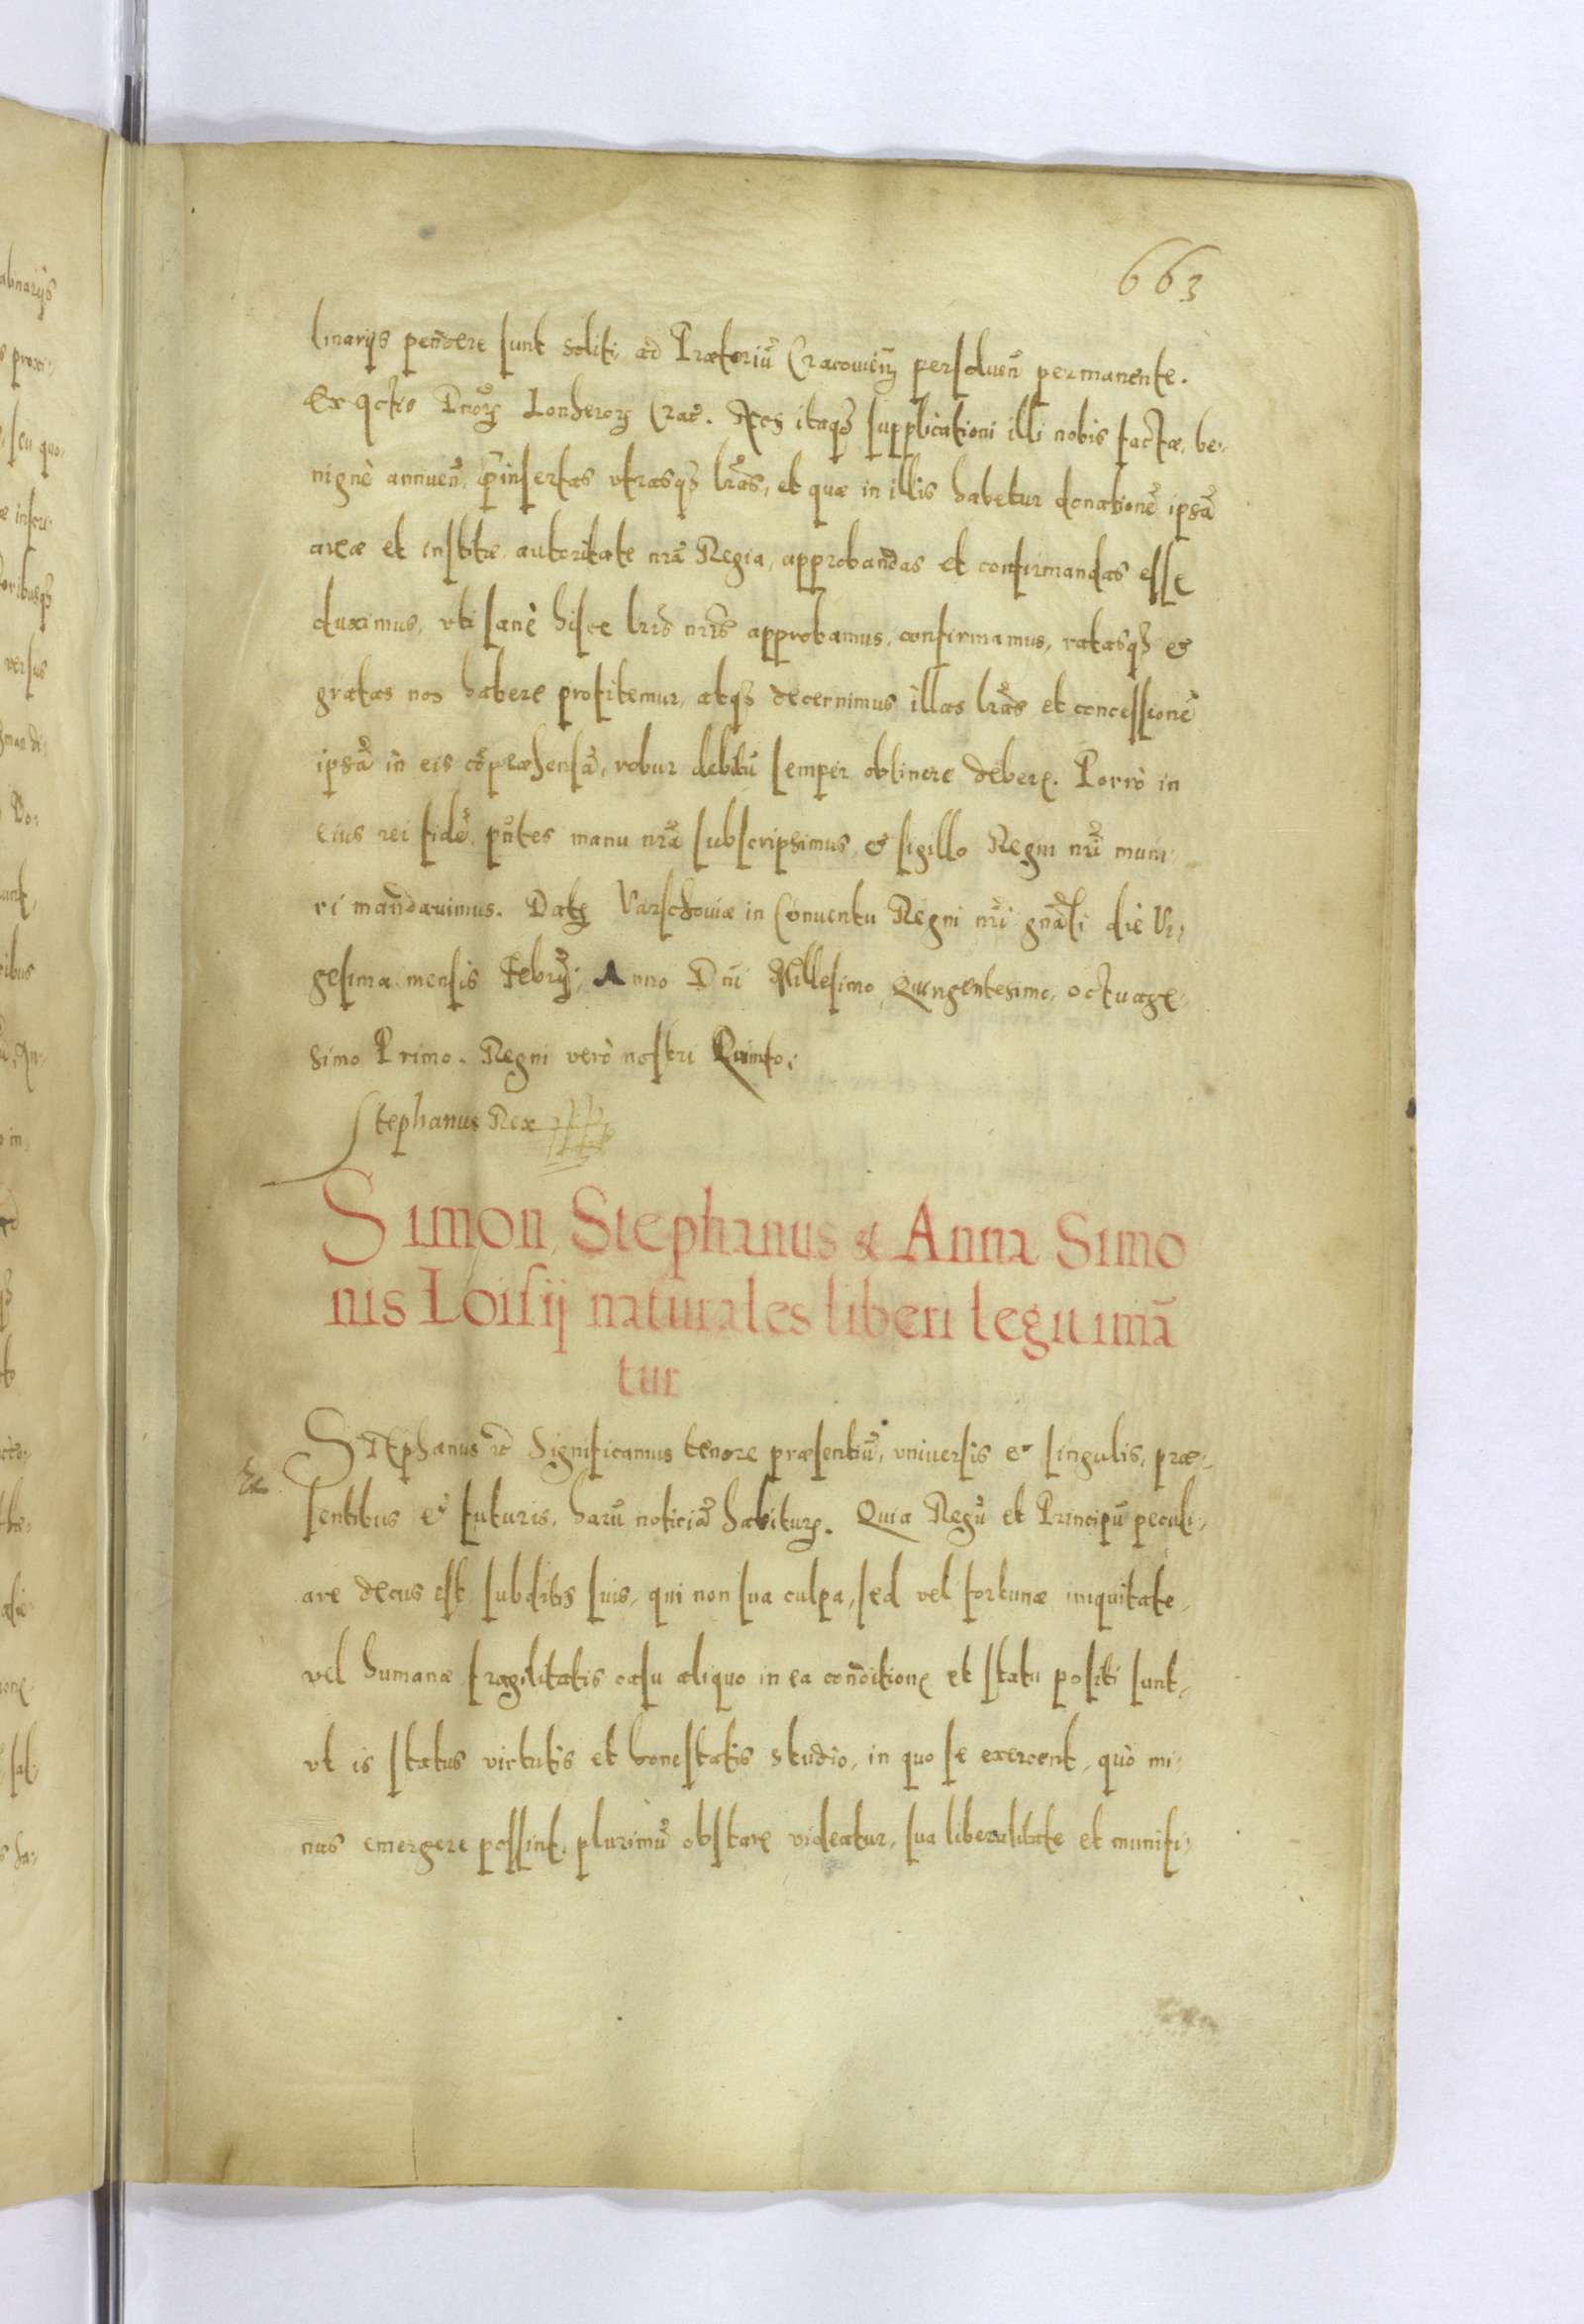 663
lnarijs pendere sunt soliti, ad Prætoriũ Cracouien̄ persoluen̄ permanente.
Ex actis Dnorꝫ Lonherorꝫ Crac̃. Nos itaqꝫ supplicationi illi nobis factæ, be-
nignè annuen̄, p̄insertas vtrasqꝫ lr̃as, et quæ in illis habetur donationẽ ipsã
areæ et institæ autoritate nrã Regia, approbandas et confirmandas esse
duximus, vti sanè hisce lrĩs nrĩs approbamus, confirmamus, ratasqꝫ &
gratas nos habere profitemur, atqꝫ decernimus illas lr̃as et concessionẽ
ipsã in eis cõpræhensã, robur debitũ semper obtinere debere. Porrò in
eius rei fidẽ, pñtes manu nrã subscripsimus & sigillo Regni nrĩ muni-
ri mandauimus. Datꝫ Varschouiæ in Conuentu Regni nrĩ gnãli die Vi-
gesima mensis Febrij; Anno Dnĩ Millesimo Quingentesimo, octuage-
simo Primo. Regni verò nostri Quinto;
Stephanus Rex
Simon, Stephanus & Anna Simo
nis Loisij naturales liberi legitimã
tur
STephanus &c̃ Significamus tenore præsentiũ, vniuersis & singulis, præ-
sentibus & futuris, harũ noticiã habituris. Quia Regũ et Principũ peculi-
are decus est, subditis suis, qui non sua culpa, sed vel fortunæ iniquitate,
vel humanæ fragilitatis casu aliquo in ea conditione et statu positi sunt,
vt is status virtutis et honestatis studio, in quo se exercent, quò mi-
nus emergere possint, plurimũ obstare videatur, sua liberalitate et munifi-